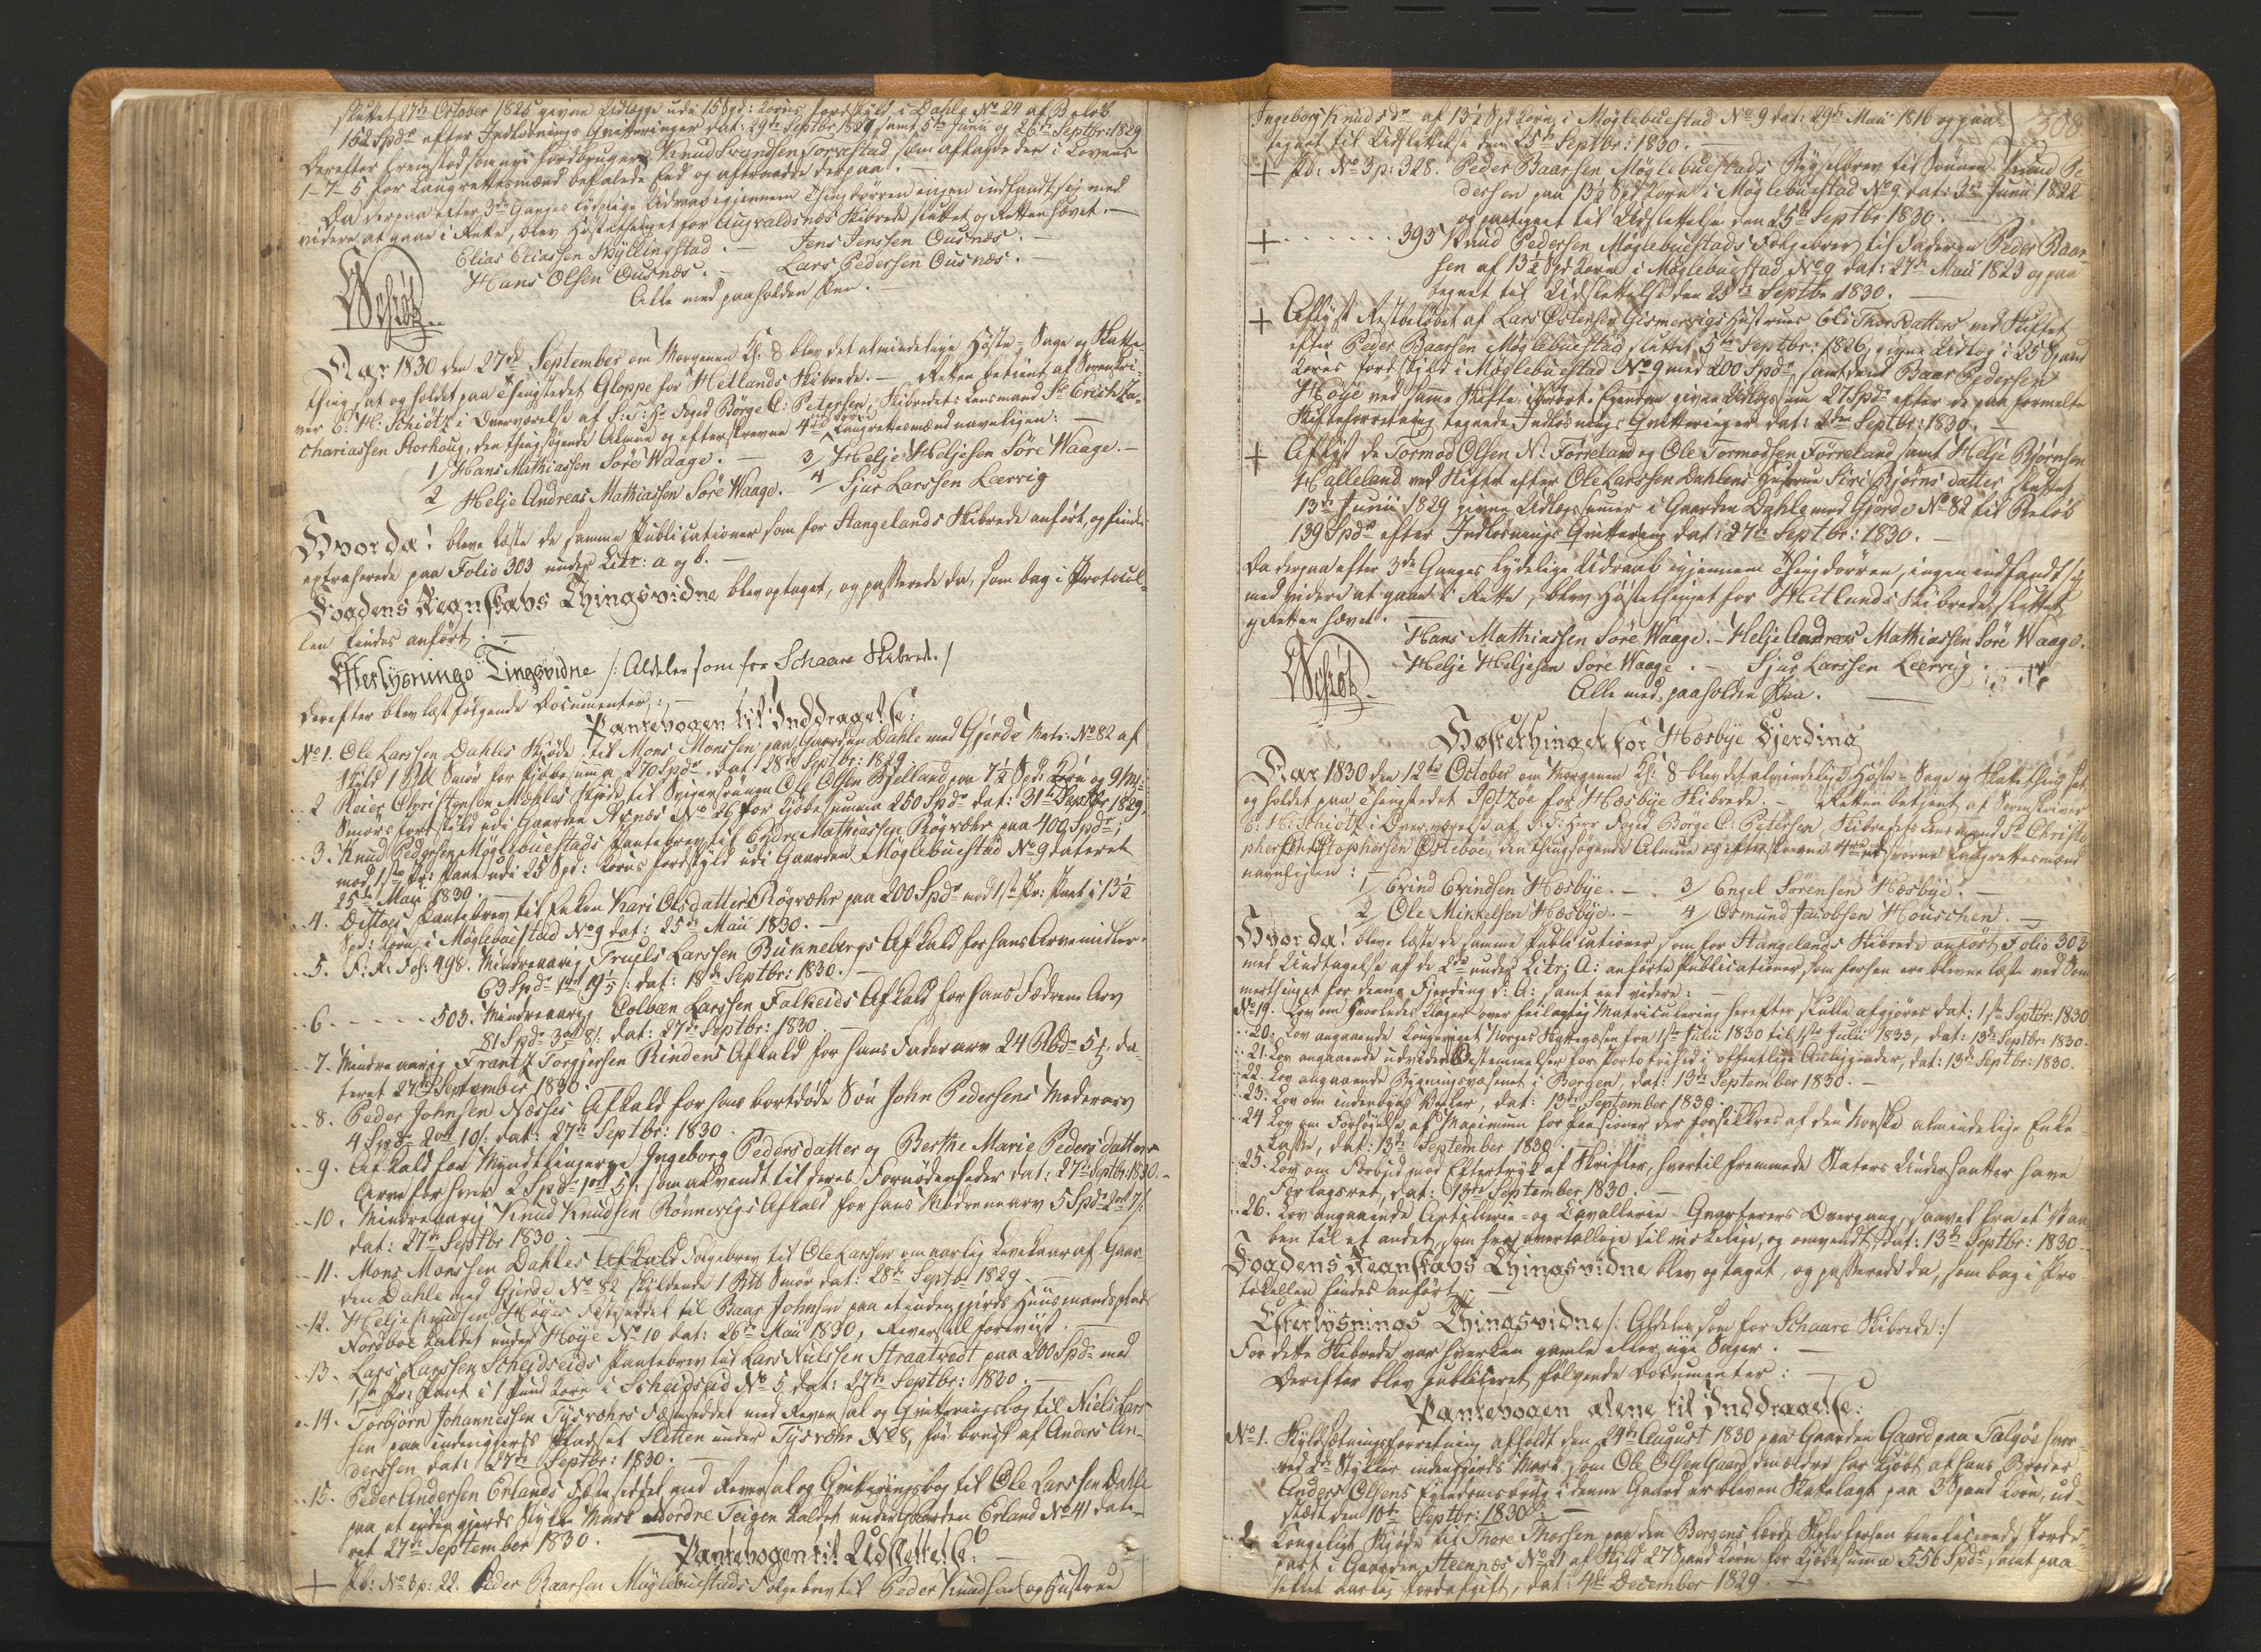 sluttet 27de October 1825 givne Udlægge udi 15 Spd: Korns Jordskyld i Dahle No 24 af Beløb
152 Spdr efter Indløsnings Qvitteringer dat: 29de Septbr 1829 samt 5te Junii og 26de Septbr: 1829
Derefter fremstod som nye Jordbruger Knud Svendsen Torvestad som aflagde den i Lovens
1-7-5 for Laugrettesmænd befalede Eed og aftraadde derpaa.
Da derpaa efter 3de Ganges lydelige Udraab igjennem Thingdørren ingen indfandt sig med
videre at gaae i Rette, blev Høstethinget for Augvaldsnæs Skibrede sluttet og Retten hævet.
Elias Eliassen Skyllingstad. Jens Jenssen Ousnæs.
Hans Olsen Ousnæs. Lars Pedersen Ousnæs.
Alle med paaholden Pen.
Schiøtz
Aar 1830 den 27de September om Morgenen Kl: 8 blev det almindelige Høste- Sage og Skatte
thing sat og holdet paa Thingstedet Gloppe for Hetlands Skibrede. Retten betient af Sorenskri-
ver C: H: Schiötz i Overværelse af S: T: Hr Foged Börge C: Petersen, Skibredets Lensmand Sr Erich Za-
chariassen Storhoug, den thingsøgende Almue og efterskrevne 4re svorne Laugrettesmænd navnligen:
1/ Hans Mathiassen Søre Waage. 3/ Helje Heljesen Søre Waage.
2 Helje Andreas Mathiassen Søre Waage. 4/ Sjur Larssen Leervig
Hvorda! bleve læste de samme Publicationer som for Stangelands Skibrede anført, og findes
extraherede paa Folio 303 under Litr: a og b.
Fogdens Regnskabs Thingsvidne blev optaget, og passerede da, som bag i Protocol-
len findes anført.
Efterlysnings Tingsvidne /: Aldeles som for Schaare Skibrede :/
Derefter blev læst følgende Documenter:
Pantebogen til Inddragelse:
No 1. Ole Larssen Dahles Skjøde til Mons Monssen paa Gaarden Dahle med Gjerde Matr: No 82 af
Skyld 1 Bd Smør for Kjøbesumma 270 Spdr dat: 28de Septbr: 1829.
2 Reier Christensen Mæhles Skjøde til Svigersønnen Ole Olsen Bjelland paa 7½ Spd: Korn og 9
Smørs Jordskyld udi Gaarden Axnæs No 26 for Kjøbesumma 250 Spdr dat: 31te 1829
3. Knud Pedersen Møglebuestads Pantebrev til Endre Mathiassen Røgvæhr paa 400 Spdr
mod 1ste Pr: Pant udi 25 Spd: Korns Jordskyld udi Gaarden Møglebuestad No 9 dateret
25de Maji 1830.
4. Dittoes Pantebrev til Enken Kari Olsdatter Røgvæhr paa 200 Spdr mod 1ste Pr: Pant i 13½
Spd: Korn i Møglebuestad No 9 dat: 25de Maii 1830.
5. Fol: 498. Mindreaarig Truels Larssen Buknebergs Afkald for hans Arvemidler
69 Spdr 1 ort 19 : dat: 18de Septbr: 1830.
6. 503. Mindreaarig Colbæn Larssen Falkeids Afkald for hans Fædrene Arv
81 Spdr 3 ort 8 : dat: 27de Septbr: 1830
7. Mindreaarig Frantz Torgjersen Rindens Afkald for hans Faderarv 24 Rbdr 5 da-
teret 27de September 1830.
8. Peder Johnsen Næsses Afkald for hans bortdøde Søn John Pedersens Moderarv
4 Spdr 2 ort 10 : dat: 27de Septbr: 1830
9. Afkald for Myndtlingerne Ingeborg Pedersdatter og Berthe Marie Pedersdatters
Arve for hver 2 Spdr 1 ort 5 : som anvendt til deres Fornødenheder dat: 27de Septbr: 1830.
10. Mindreaarig Knud Knudsen Rønnevigs Afkald for hans Mødrenearv 5 Spdr 2 ort 7
dat: 27de Septbr 1830.
11. Mons Monssen Dahles Folgebrev til Ole Larssen om aarlig Levekaar af Gaar-
den Dahle med Gjerde No 82 skyldende 1 Bd Smør dat: 28de Septbr 1829.
12. Helje Knudsen Høyes Fæsteseddel til Baar Johnsen paa et indengjerds Huusmandsplads
Nordboe kaldet under Høye No 10 dat: 26de Maii 1830, Reversal forevist.
13. Lars Larssen Scheidseids Pantebrev til Lars Nielssen Straatvedt paa 200 Spdr mod
1ste Pr: Pant i 1 Pund Korn i Scheidseid No 5 dat: 27de Septbr: 1830.
14. Torbjørn Johannessen Tysvæhrs Fæsteseddel med Reversal og Qvitteringsbog til Niels Lars-
sen paa indengjerds Pladset Sletten under Tysvæhr No 8, før brugt af Anders An-
derssen dat: 27de Septbr: 1830.
15. Peder Andersen Erlands Fæsteseddel med Reversal og Qvitteringsbog til Ole Larssen Dahle
paa et indengjerds Stykke Mark Nordre Teigen kaldet under Gaarden Erland No 41 date-
ret 27de September 1830.
Pantebogen til Udslettelse:
+ Pb: No 3 p: 22. Peder Baarsen Møglebuestads Folgebrev til Peder Knudsen og Hustrue
308
Ingeborg Knudsdr af 13½ Spd Korn i Møglebuestad No 9 dat: 29de Maii 1816 og paa-
tegnet til Udslettelse den 25de Septbr: 1830.
+ Pb: No 3 p: 328. Peder Baarsen Møglebuestads Bygselbrev til Sønnen Knud Pe-
dersen paa 13½ Spd Korn i Møglebuestad No 9 dat: 3die Junii 1822
og paategnet til Udslettelse den 25de Septbr 1830.
+ 393 Knud Pedersen Møglebuestads Folgebrev til Faderen Peder Baar-
sen af 13½ Spd Korn i Møglebuestad No 9 dat: 27de Maii 1823 og paa-
tegnet til Udslettelse den 25de Septbr 1830.
+ Aflyst Restbeløbet af Lars Østensen Gismervigs Hustrues Eli Thorsdatters ved Skiftet
efter Peder Baarsen Møglebuestad sluttet 5te Septbr: 1826, givne Udlæg i 25 Spand
Korns Jordskyld i Møglebuestad No 9 med 200 Spdr, samt den Baar Pedersen
Høye ved samme Skifte i givne Udlægssum 27 Spdr efter de paa formelte
Skifteforretning tegnede Indløsnings Qvitteringer dat: 2den Septbr: 1830.
+ Aflyst de Tormod Olsen N: Førreland og Ole Tormodsen Førreland samt Helje Bjørnsen
Halleland ved Skifte efter Ole Larssen Dahlens Hustrue Siri Bjørnsdatter sluttet
13de Junii 1829 givne Udlægssumer i Gaarden Dahle med Gjerde No 82 til Beløb
139 Spdr efter Indløsnings Qvittering dat: 27de Septbr: 1830.
Da derpaa efter 3de Ganges lydelige Udraab igjennem Thingdørren, ingen indfandt sig
med videre at gaae i Rette, blev Høstethinget for Hetlands Skibrede sluttet
og Retten hævet.
Hans Mathiassen Søre Waage. Helje Andreas Mathiassen Søre Waage.
Helje Heljesen Søre Waage. Sjur Larssen Leervig.
Alle med paaholden Pen.
Schiøtz
Høstethinget for Hæsbye Fjerding
Aar 1830 den 12te October om Morgenen Kl: 8 blev det almindelige Høste- Sage og Skattething sat
og holdet paa Thingstedet Idtzøe for Hæsbye Skibrede. Retten betjent af Sorenskriver
C: H: Schiötz i Overværelse af S: T: Herr Foged Börge C: Petersen, Skibredets Lensmand Sr Christo-
pher Christophersen Østeboe, den thingsøgende Almue og efterskrevne 4re svorne Laugrettesmænd
navnligen:
1/ Evind Evindsen Hæsbye. 3/ Engel Sørensen Hæsbye.
2/ Ole Mikkelsen Hæsbye. 4/ Osmund Jacobsen Houschen.
Hvorda! bleve læste de samme Publicationer som for Stangelands Skibrede anført Folio 303
med Undtagelse af de 2de under Litr: A: anførte Publicationer, som forhen ere blevne læste ved Som-
merthinget for denne Fjerding d: A: samt end videre:
No 19. Lov om Hvorledes Klager over feilagtig Matriculering herefter skulle afgjøres dat: 1ste Septbr: 1830
20. Lov angaaende Kongeriget Norges Fogtvæsen fra 1ste Julii 1830 til 1ste Julii 1833, dat: 13de Septbr: 1830.
21. Lov angaaende udvidede Bestemmelser for Portofrihed i offentlige Anliggender, dat: 13de Septbr: 1830.
22. Lov angaaende Bygningsvæsenet i Bergen, dat: 13de September 1830.
23. Lov om indenbyes Vexler, dat: 13de September 1830.
24 Lov om Forhøielse af Maximum for Pensioner der forsikkres af den Norske almindelige Enke
Kasse, dat: 13de September 1830.
25. Lov om Forbud mod Eftertryk af Skrifter, hvortil fremmede Staters Undersaatter have
Forlagsret, dat: 13de September 1830.
26. Lov angaaende Artillerie- og Cavallerie-Qvarterers Overgang, saavel fra et Vaa-
ben til et andet, som fra overtallige til virkelige, og omvendt, dat: 13de Septbr: 1830.
Fogdens Regnskabs Thingsvidne blev optaget, og passerede da, som bag i Pro-
tokollen findes anført.
Efterlysnings Thingsvidne /: Aldeles som for Schaare Skibrede :/
For dette Skibrede var hverken gamle eller nye Sager.
Derefter blev publiceret følgende Documenter:
Pantebogen alene til Inddragelse:
No 1. Skyldsætningsforretning afholdt den 24de August 1830 paa Gaarden Gaard paa Talgøe hvor-
ved 2de Stykker indengjerds Mark, som Ole Olsen Gaard den ældre har kjøbt af hans Broder
Anders Olsens Eiendomsbrug i denne Gaard er bleven skatlagt paa 3 Spand Korn, ud-
stædt den 10de Septbr: 1830
2. Kongeligt Skjøde til Thore Thorsen paa den Bergens Lærde Skole forhen beneficerede Jorde-
part i Gaarden Steennæs No 21 af Skyld 27 Spand Korn for Kjøbesumma 556 Spdr, samt paa-
heftet aarlig Jordafgift, dat: 4de December 1829.